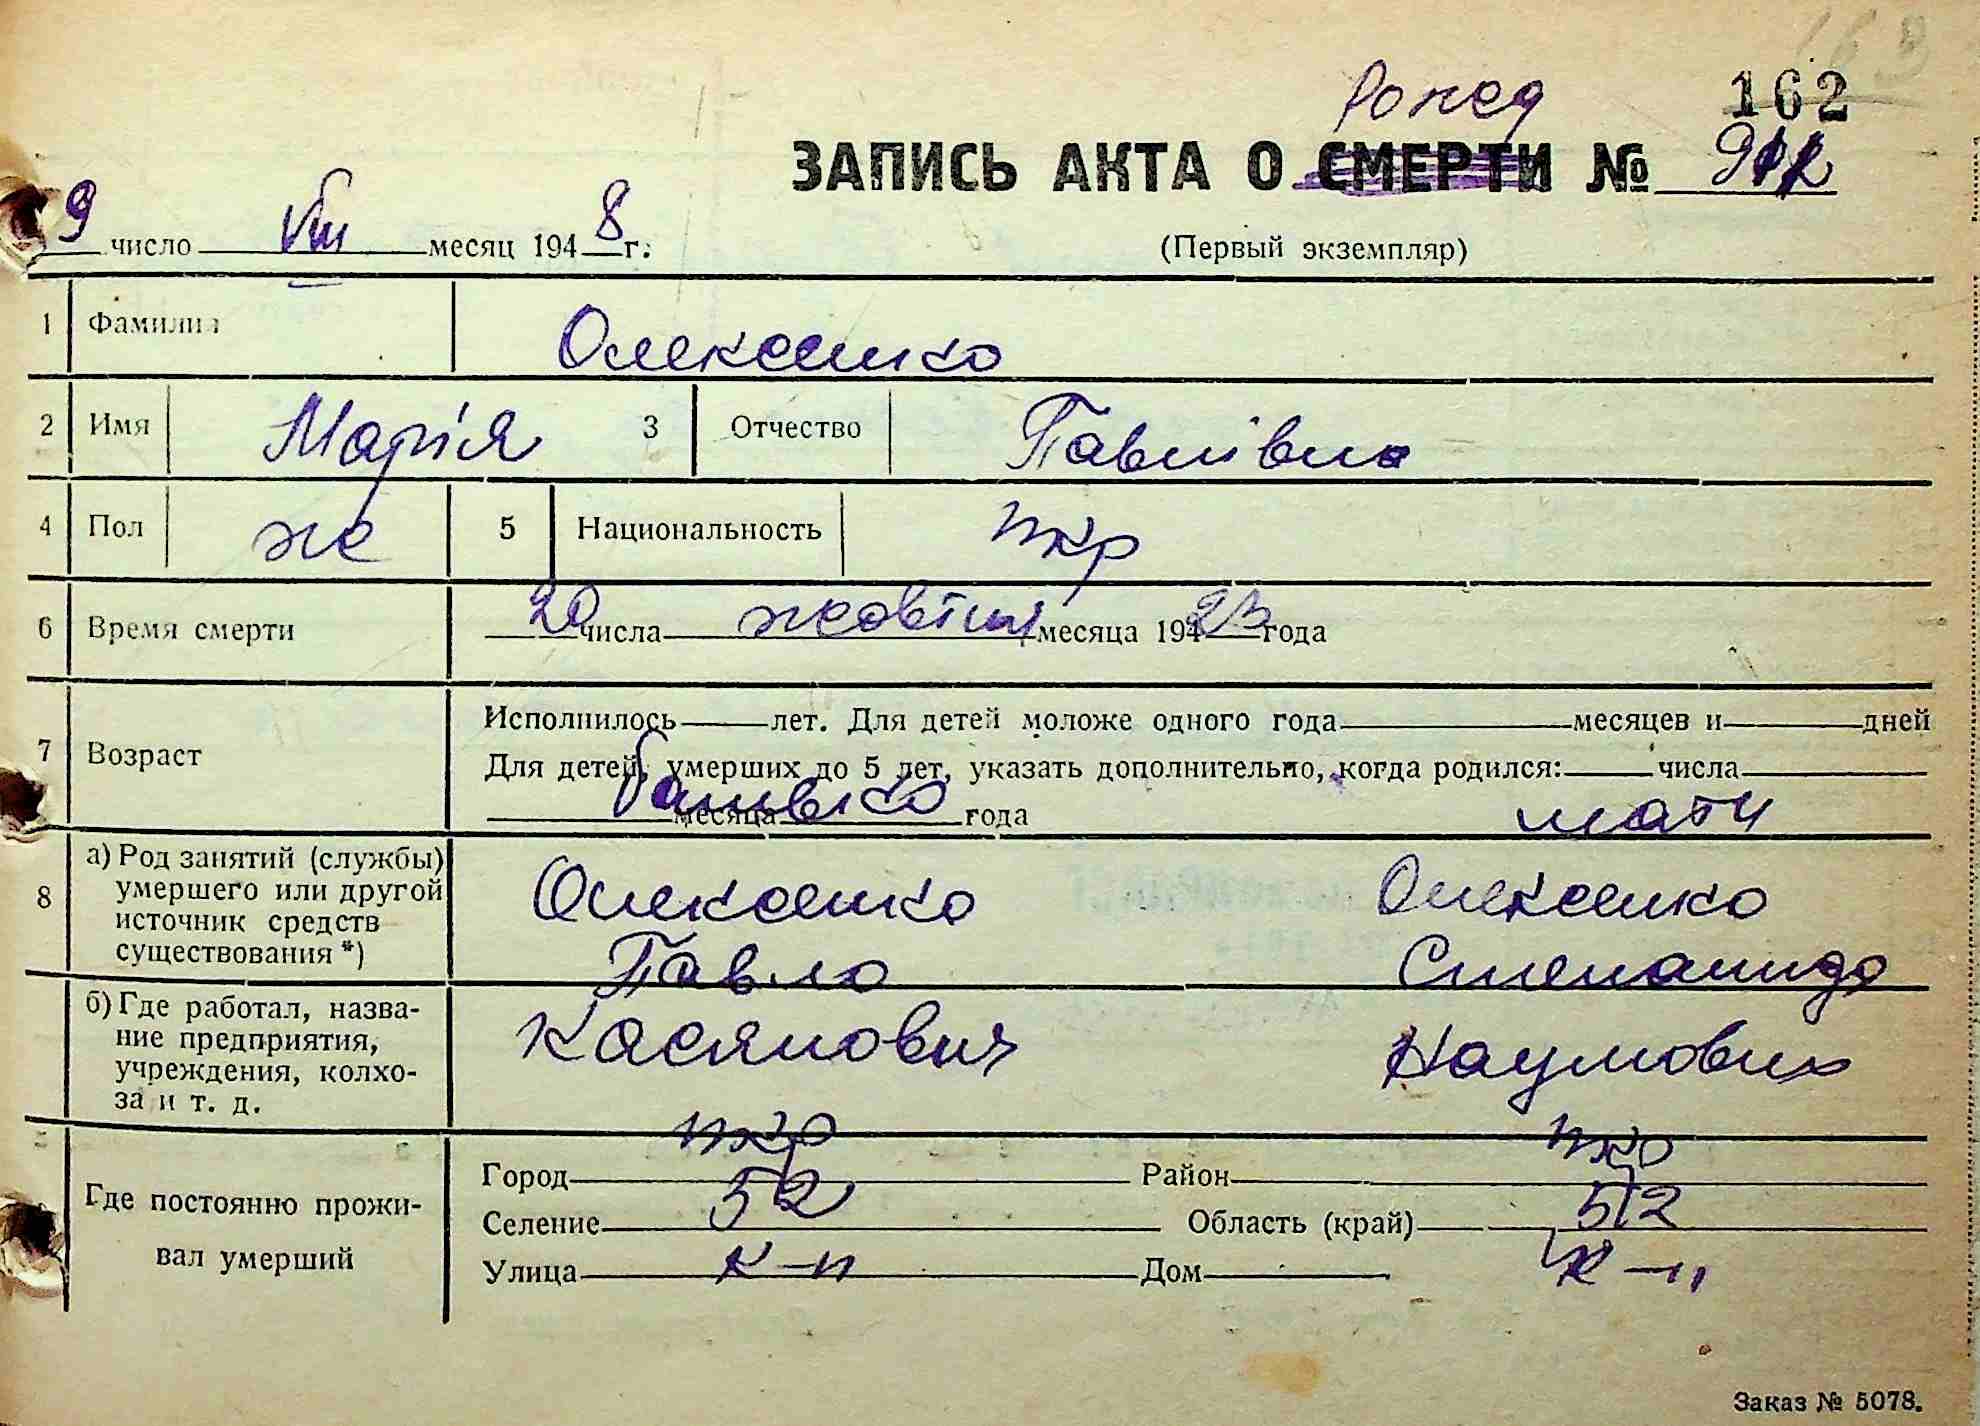 163
162
рожед
ЗАПИСЬ АКТА О СМЕРТИ №
9 число VIII месяц 1948 г.
(Первый экземпляр)
1 Фамилия Олексенко
2 Имя Марія 3 Отчество Павлівна
4 Пол же 5 Национальность укр
6 Время смерти 20 числа жовтня месяца 194 23 года
7 Возраст Исполнилось лет. Для детей моложе одного года месяцев и дней
Для детей, умерших до 5 лет, указать дополнительно, когда родился: числа
месяца года
батько мати
8 а) Род занятий (службы) умершего или другой источник средств существования *)
Олексенко Олексенко
Павло Степанида
б) Где работал, название предприятия, учреждения, колхоза и т. д.
Касянович Наумовна
укр укр
Где постоянно проживал умерший
Город Район
52 52
Селение Область (край)
Улица к-п Дом к-п
Заказ № 5078.